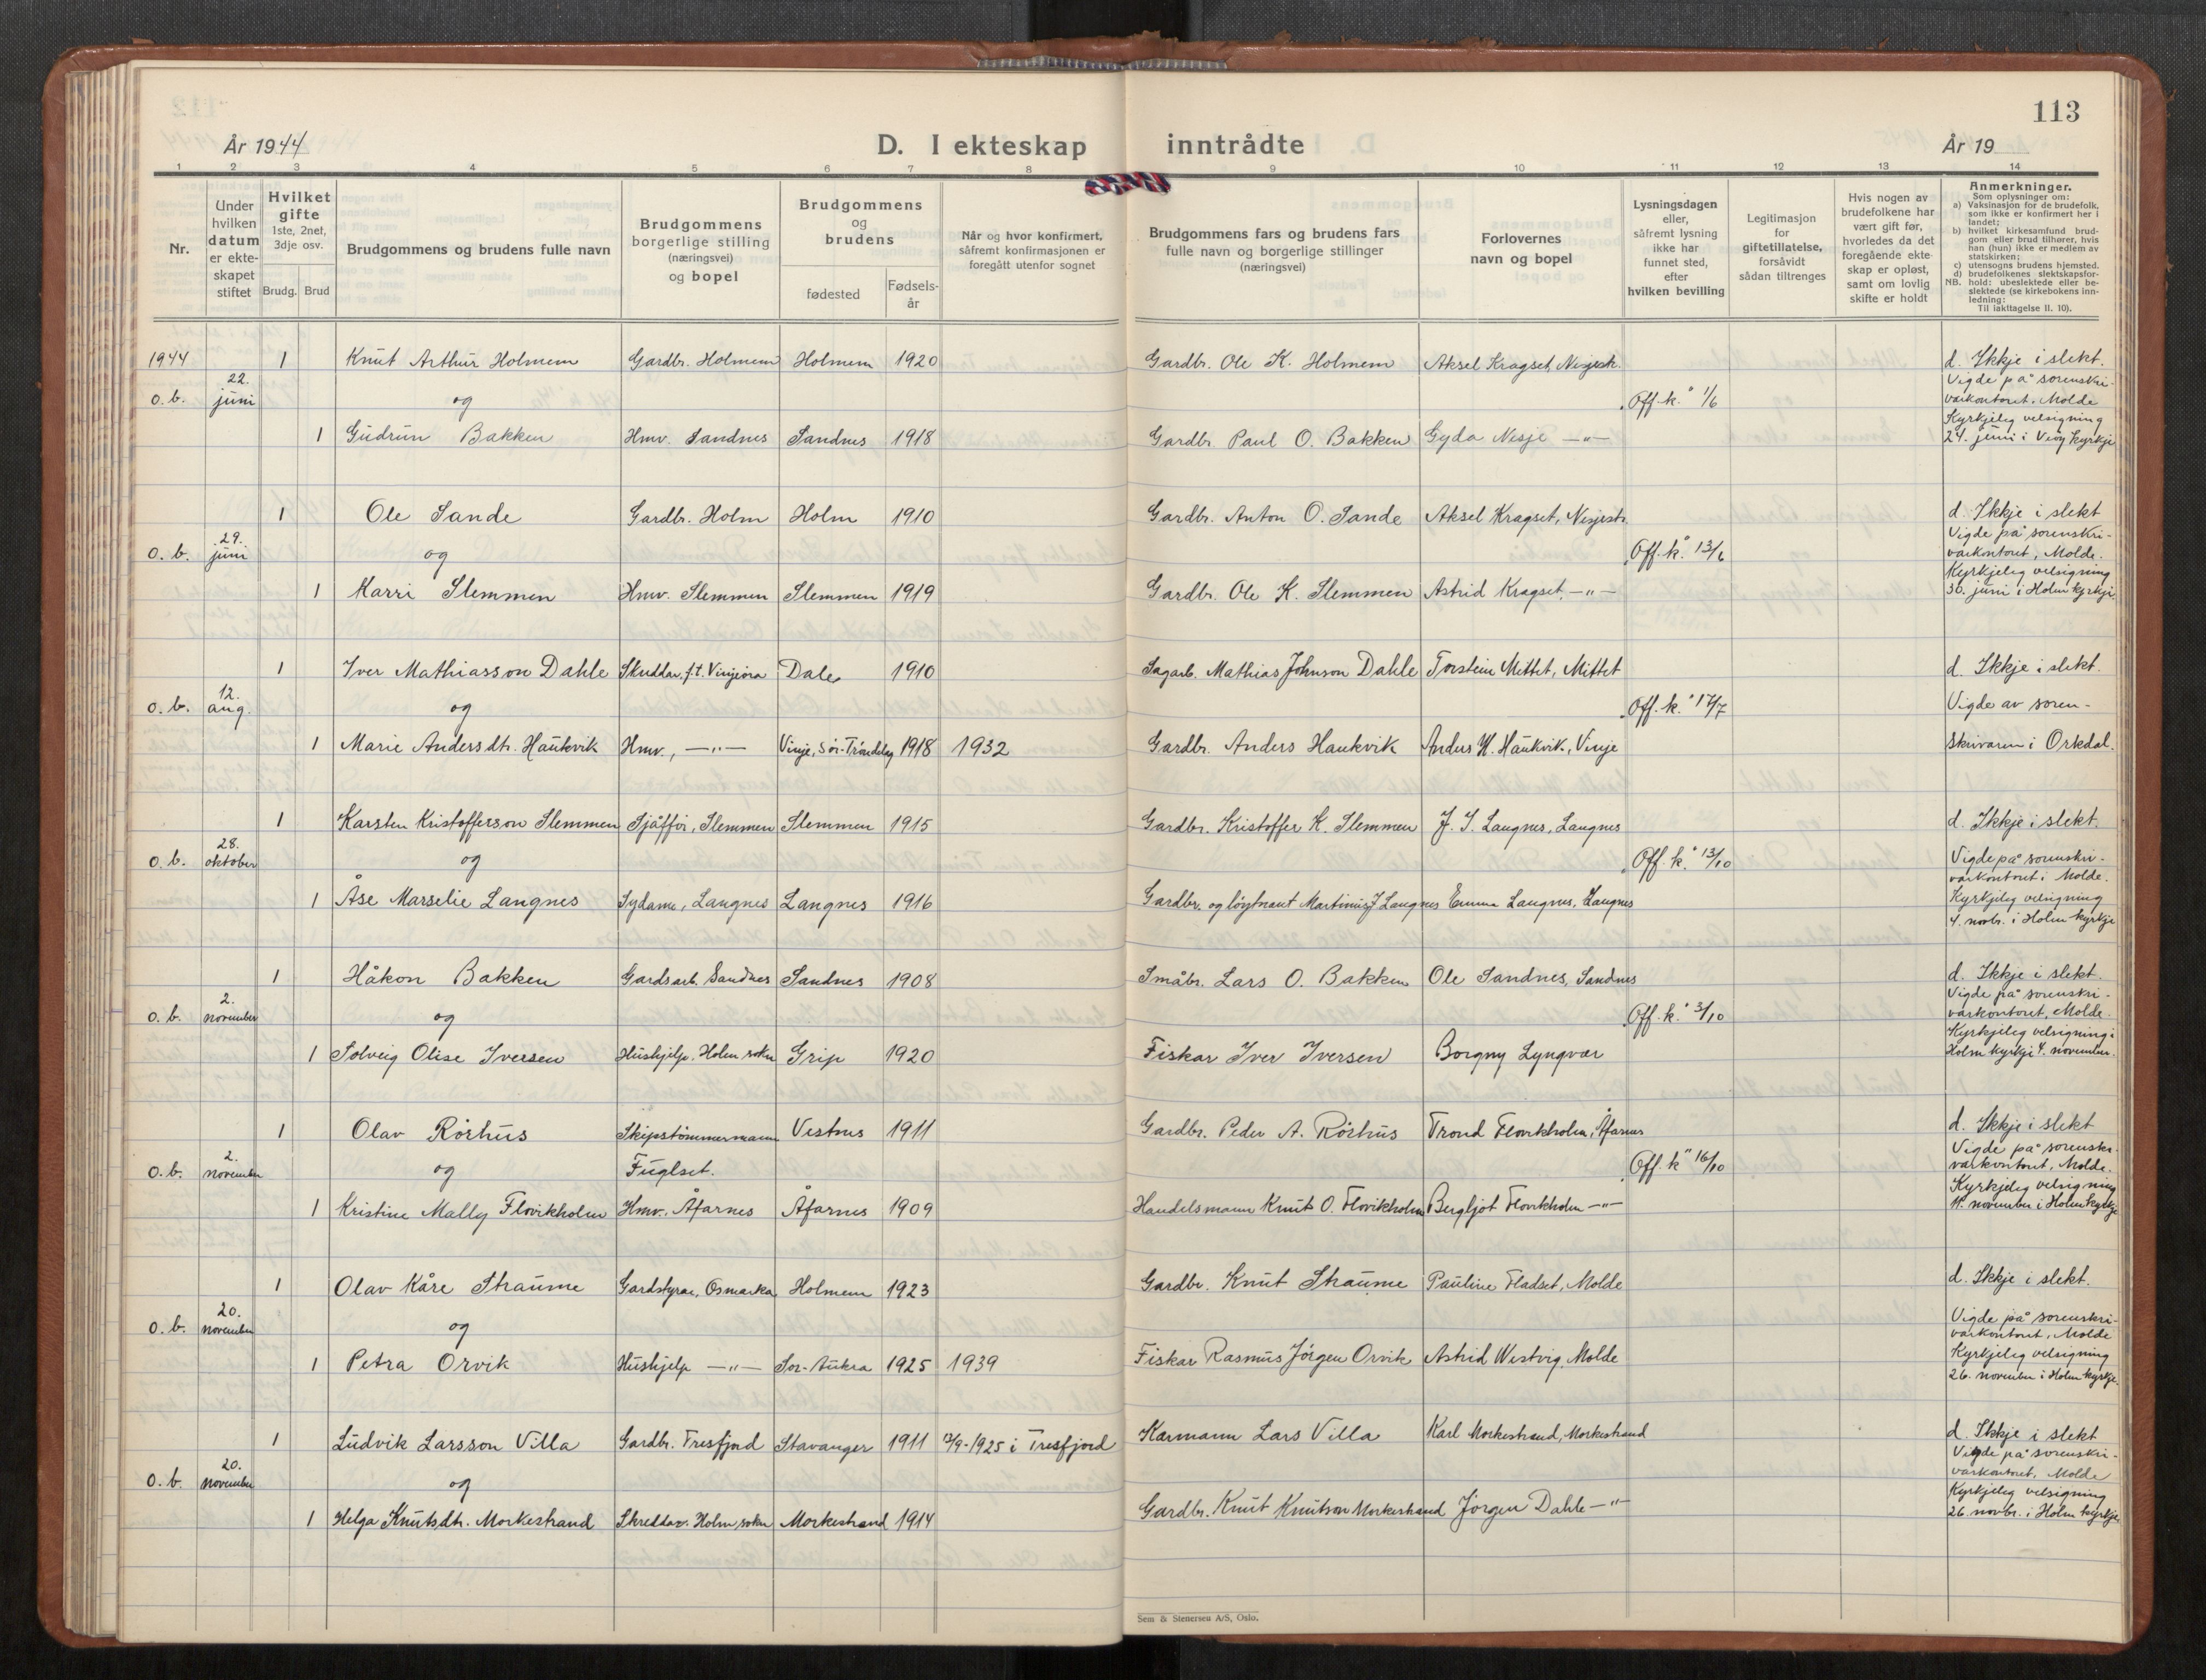 113
År 1944
D. I ekteskap inntrådte
År 19
1 2 3 4 5 6 7 8 9 10 11 12 13 14
Nr.
Under hvilken datum er ekte-skapet stiftet
Hvilket gifte 1ste, 2net, 3dje osv.
Brudg. Brud
Brudgommens og brudens fulle navn
Brudgommens borgerlige stilling (næringsvei) og bopel
Brudgommens og brudens
fødested
Fødsels-år
Når og hvor konfirmert, såfremt konfirmasjonen er foregått utenfor sognet
Brudgommens fars og brudens fars fulle navn og borgerlige stillinger (næringsvei)
Forlovernes navn og bopel
Lysningsdagen eller, såfremt lysning ikke har funnet sted, efter hvilken bevilling
Legitimasjon for giftetillatelse, forsåvidt sådan tiltrenges
Hvis nogen av brudefolkene har vært gift før, hvorledes da det foregående ekte-skap er opløst, samt om lovlig skifte er holdt
Anmerkninger.
Som oplysninger om:
a) Vaksinasjon for de brudefolk, som ikke er konfirmert her i landet;
b) hvilket kirkesamfund brud-gom eller brud tilhører, hvis han (hun) ikke er medlem av statskirken;
c) utensogns brudens hjemsted.
d) brudefolkenes slektskapsfor-hold: ubeslektede eller be-slektede (se kirkebokens inn-ledning:
NB.
Til iakttagelse II. 10).
1944 1 Knut Arthur Holmem Gardbr. Holmem Holmem 1920 Gardbr. Ole K. Holmem Aksel Kragset, d. Ikkje i slekt.
o. b. 22. juni og Off. k. 1/6 Vigde på sorenskri-varkontoret, Molde
1 Gudrun Bakken Hmv. Sandnes Sandnes 1918 Gardbr. Paul O. Bakken Gyda Nesje —"— Kyrkjeleg velsigning 24. juni i Veøy kyrkje
1 Ole Sande Gardbr. Holm Holm 1910 Gardbr. Anton O. Sande Aksel Kragset, d. Ikkje i slekt
o. b. 29. juni og Off. k. 13/6 Vigde på sorenskri-varkontoret, Molde.
1 Karri Slemmen Hmv. Slemmen Slemmen 1919 Gardbr. Ole K. Slemmen Astrid Kragset, —"— Kyrkjeleg velsigning 30. juni i Holm kyrkje
1 Iver Mathiasson Dahle Skreddar, f.t. Vinjeøra Dale 1910 Sagarb. Mathias Johnson Dahle Torstein Mittet, Mittet d. Ikkje i slekt.
o. b. 12. aug. og Off. k. 17/7 Vigde av soren-
1 Marie Andersdtr. Haukvik Hmv., —"— Vinje, Sør-Trøndelag 1918 1932 Gardbr. Anders Haukvik Anders H. Haukvik, Vinje skrivaren i Orkdal.
1 Karsten Kristofferson Slemmen Sjåfør, Slemmen Slemmen 1915 Gardbr. Kristoffer K. Slemmen J. I. Langnes, Langnes d. Ikkje i slekt.
o. b. 28. oktober og Off. k. 13/10 Vigde på sorenskri-varkontoret i Molde.
1 Åse Marselie Langnes Sydame, Langnes Langnes 1916 Gardbr. og løytnant Martinus J Langnes Emma Langnes, Langnes Kyrkjeleg velsigning 4. novbr. i Holm kyrkje
1 Håkon Bakken Gardsarb. Sandnes Sandnes 1908 Småbr. Lars O. Bakken Ole Sandnes, Sandnes d. Ikkje i slekt.
o. b. 2. november og Off. k. 3/10 Vigde på sorenskri-varkontoret, Molde.
1 Solveig Olise Iversen Hushjelp, Holm sokn Grip 1920 Fiskar Iver Iversen Borgny Lyngvær Kyrkjeleg velsigning i Holm kyrkje 4. november.
1 Olav Rörhus Skipstømmermann Vestnes 1911 Gardbr. Peder A. Rörhus Trond Flovikholm, Åfarnes d. Ikkje i slekt
o. b. 2. november og Fuglset. Off. k. 16/10 Vigde på sorenskri-varkontoret, Molde.
1 Kristine Mally Flovikholm Hmv. Åfarnes Åfarnes 1909 Handelsmann Knut O. Flovikholm Bergljot Flovikholm —"— Kyrkjeleg velsigning 11. november i Holm kyrkje
1 Olav Kåre Straume Gardstyrar, Osmarka Holmem 1923 Gardbr. Knut Straume Pauline Fladset, Molde d. Ikkje i slekt.
o. b. 20. november og Vigde på sorenskri-varkontoret, Molde
1 Petra Orvik Hushjelp —"— Sør-Aukra 1925 1939 Fiskar Rasmus Jörgen Orvik Astrid Westvig, Molde Kyrkjeleg velsigning 26. november i Holm kyrkje.
1 Ludvik Larsson Villa Gardbr. Tresfjord Stavanger 1911 13/9-1925 i Tresfjord Kármann Lars Villa Karl Morkestrand, Morkestrand d. Ikkje i slekt
o. b. 20. november og Vigde på sorenskri-varkontoret, Molde
1 Helga Knutsdtr. Morkestrand Skreddar. Holm sokn Morkestrand 1914 Gardbr. Knut Knutson Morkestrand Jörgen Dahle —"— Kyrkjeleg velsigning 26. novbr. i Holm kyrkje
Sem & Stenersen A/S, Oslo.